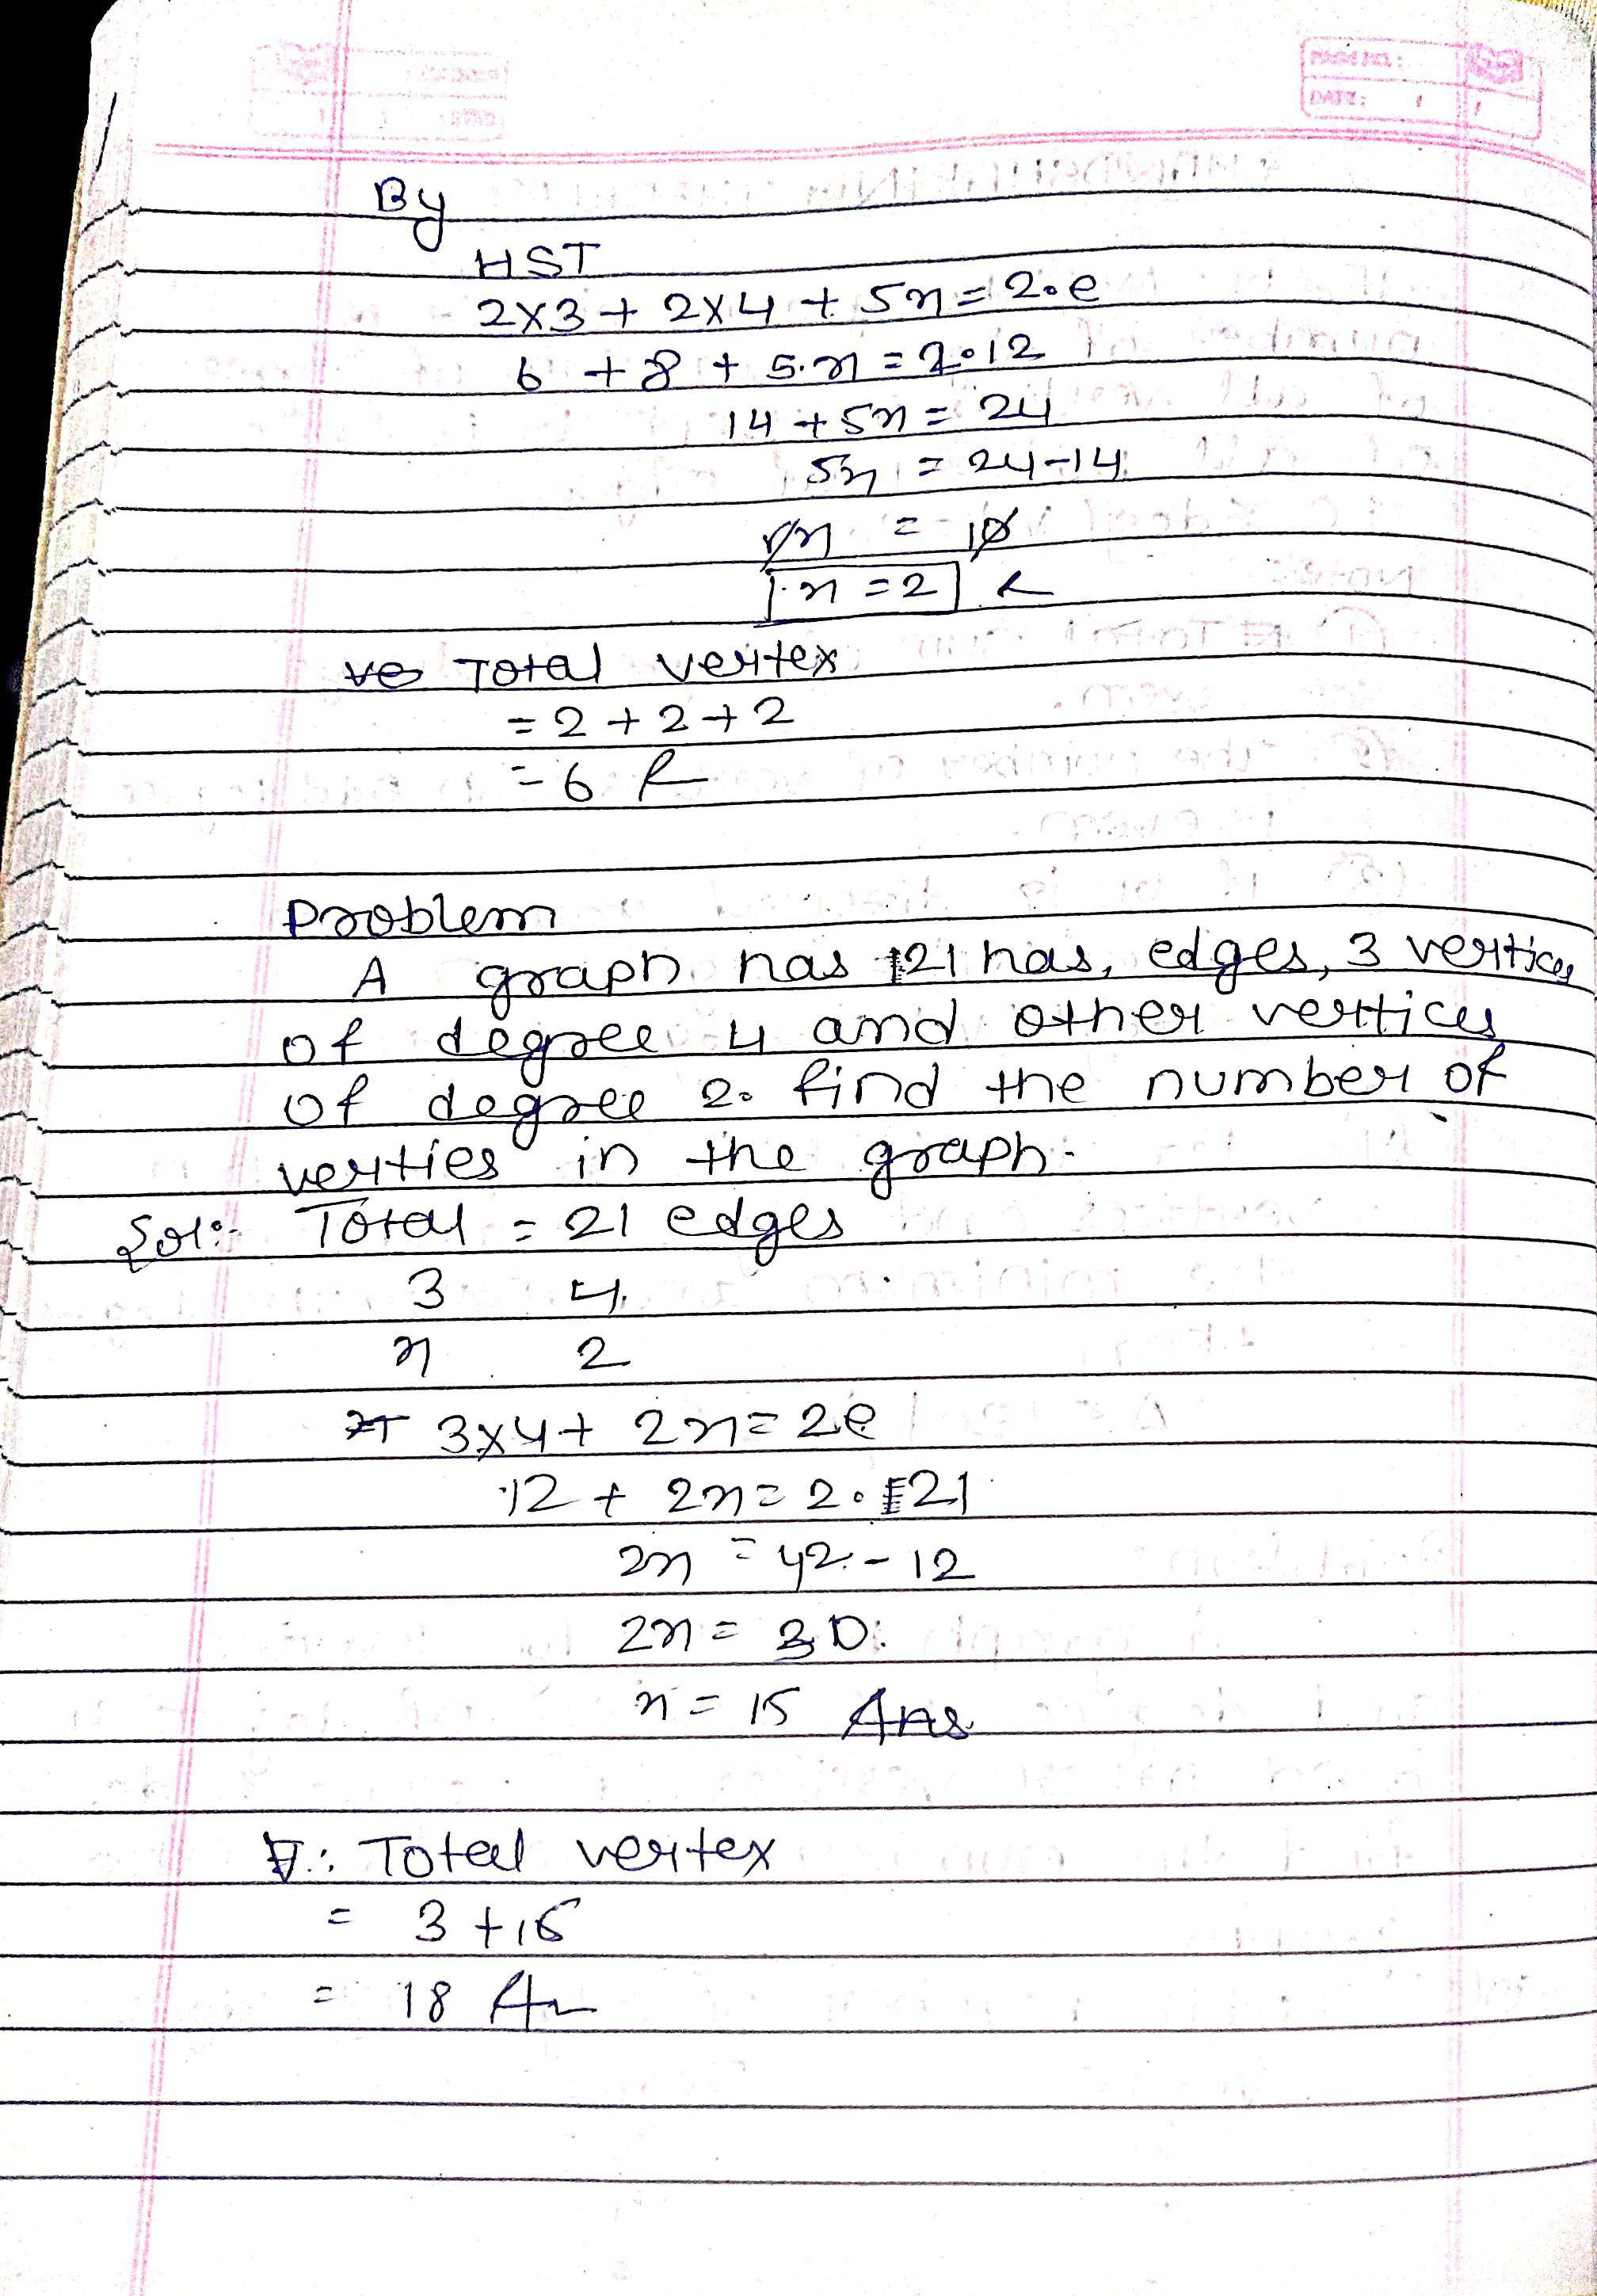 PAGE NO.:
DATE: / /
By
HST
2x3 + 2x4 + 5n = 2.e
6 + 8 + 5.n = 2.12
14 + 5n = 24
5n = 24-14
5n = 10
n = 2
Total vertex
= 2 + 2 + 2
= 6
Problem
A graph has 21 has, edges, 3 vertices
of degree 4 and other vertices
of degree 2. find the number of
verties in the graph.
Sol:- Total = 21 edges
3 4
n 2
3x4 + 2n = 2e
12 + 2n = 2.21
2n = 42 - 12
2n = 30
n = 15 Ans
∴ Total vertex
= 3 + 15
= 18 An